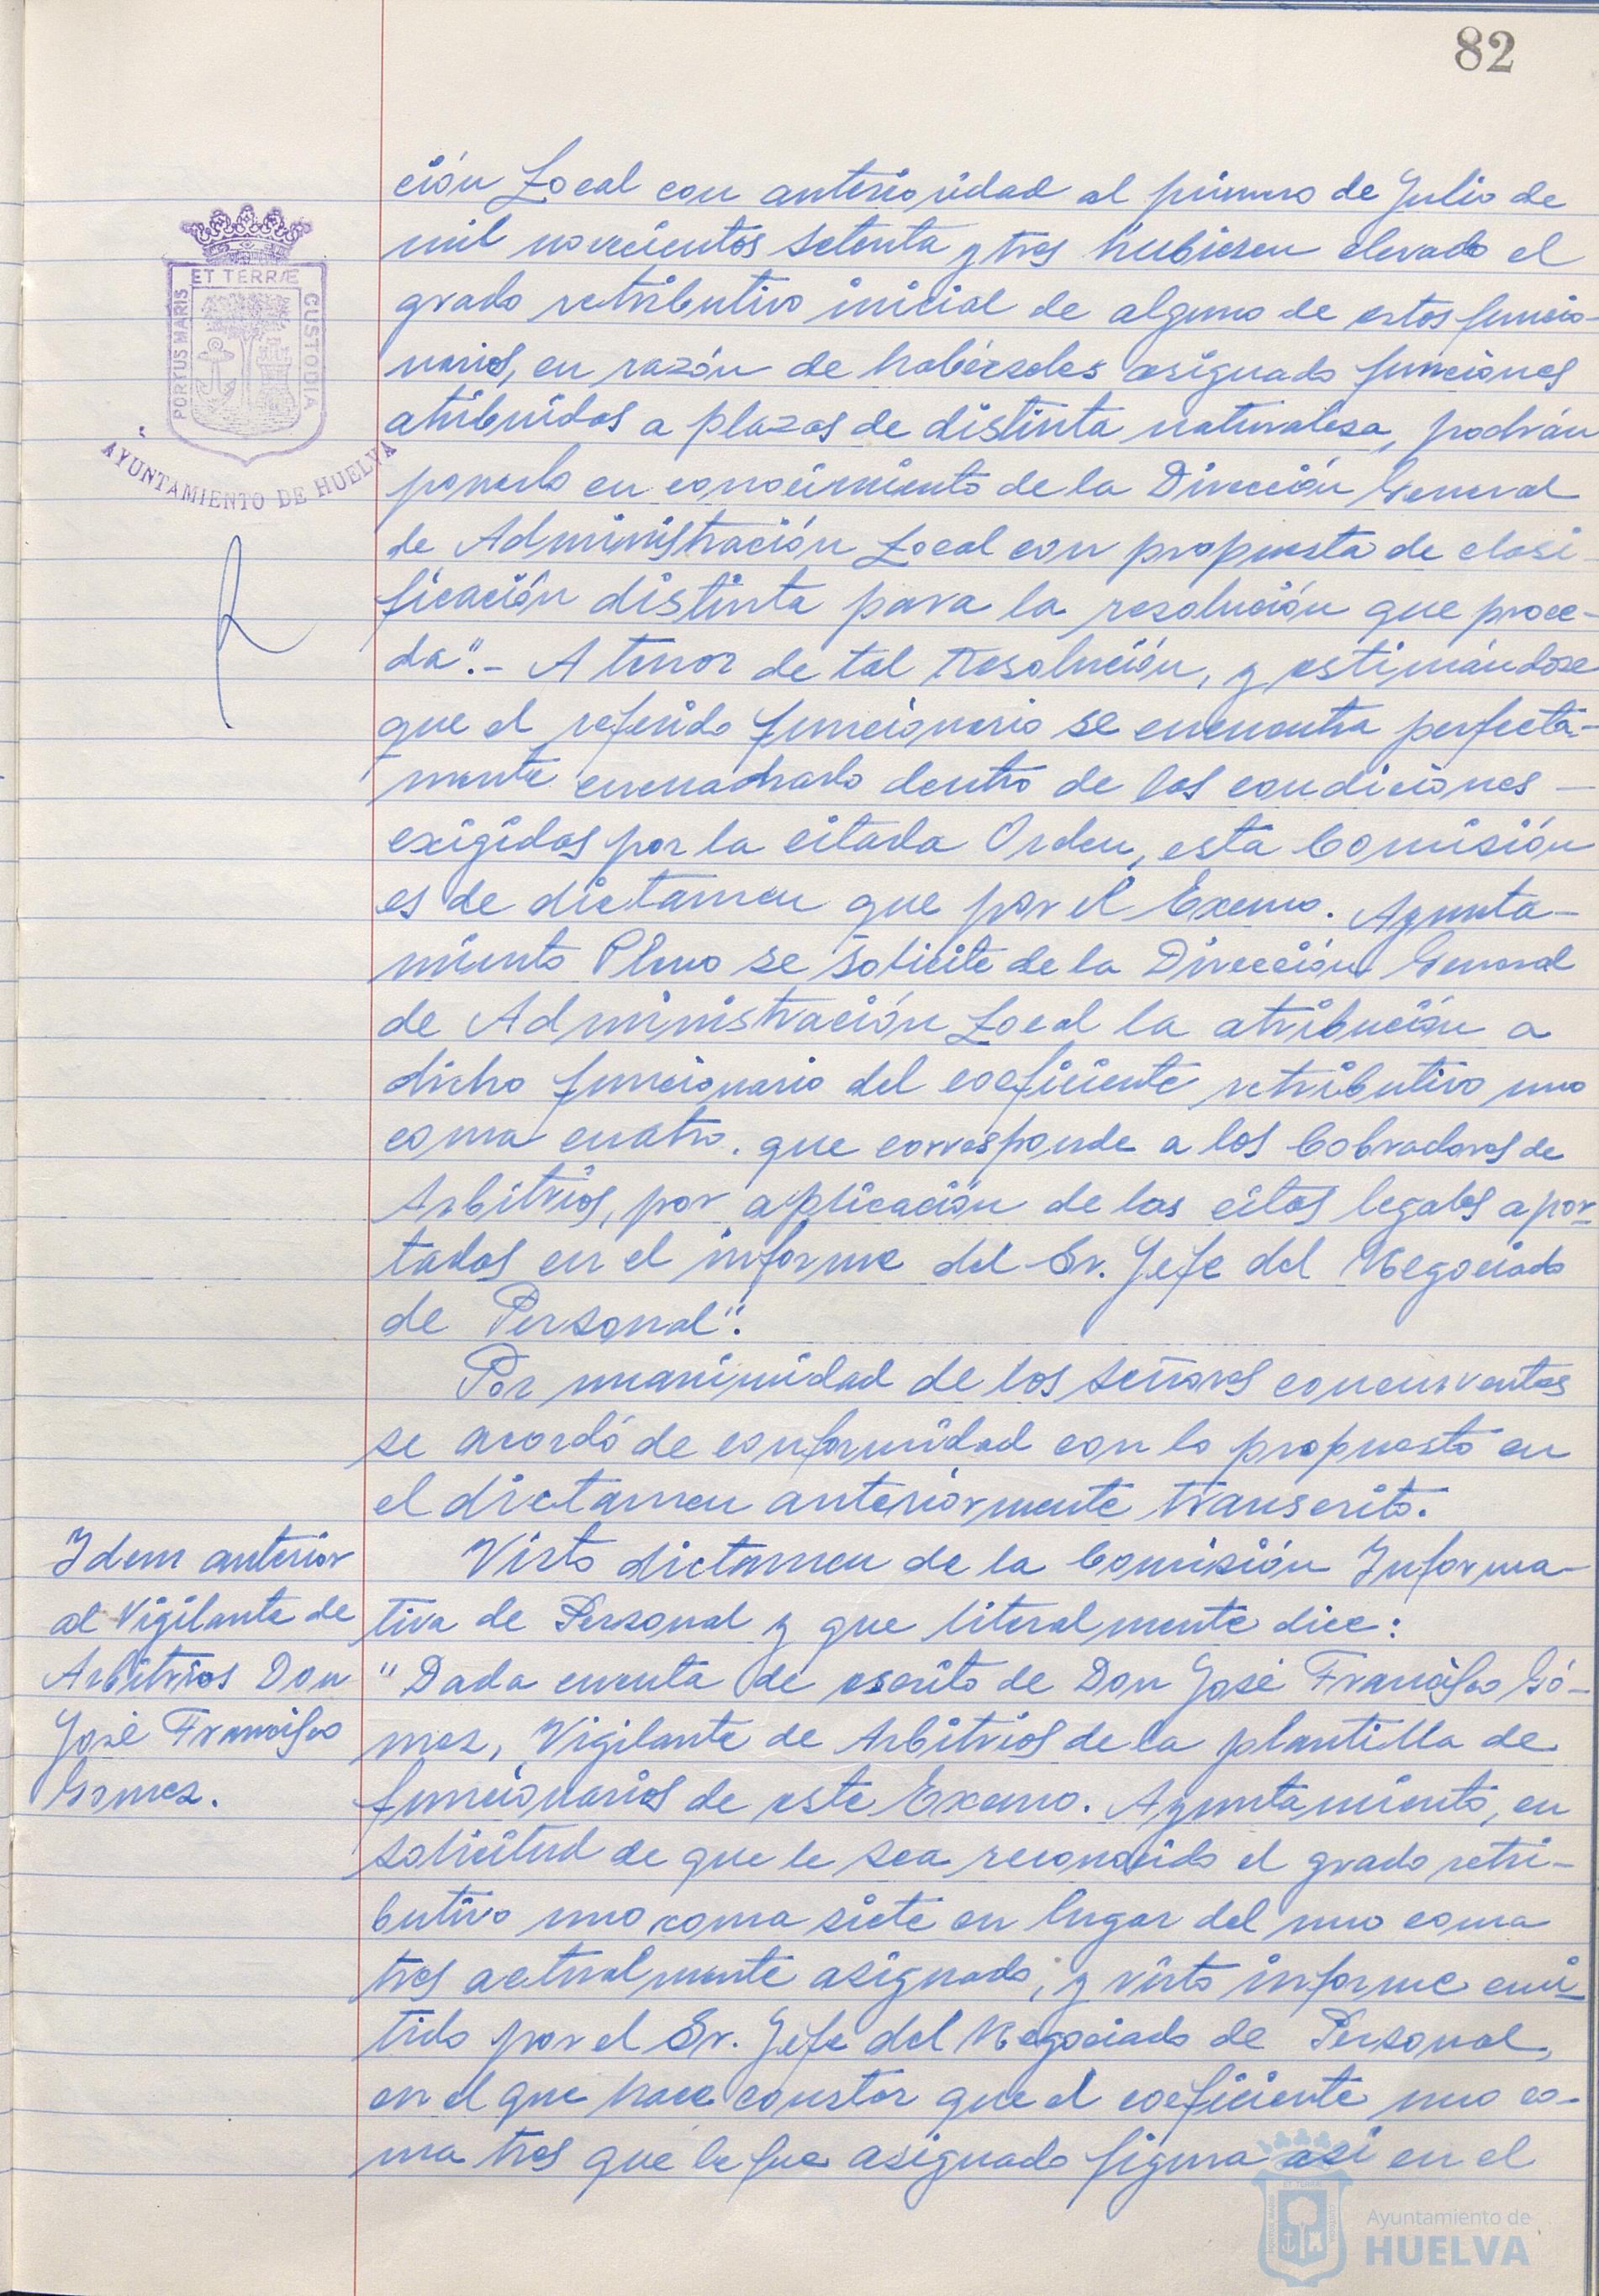 82
ción Local con anterioridad al primero de Julio de
mil novecientos setenta y tres hubiesen elevado el
grado retributivo inicial de alguno de estos funcio-
narios, en razón de habérseles asignado funciones
atribuidas a plazas de distinta naturaleza, podrán
ponerlo en conocimiento de la Dirección General
de Administración Local con propuesta de clasi-
ficación distinta para la resolución que proce-
da".- A tenor de tal Resolución, y estimándose
que el referido funcionario se encuentra perfecta-
mente encuadrado dentro de las condiciones -
exigidas por la citada Orden, esta Comisión
es de dictamen que por el Excmo. Ayunta-
miento Pleno se solicite de la Dirección General
de Administración Local la atribución a
dicho funcionario del coeficiente retributivo uno
coma cuatro. que corresponde a los Cobradores de
Arbitrios, por aplicación de las citas legales apor-
tadas en el informe del Sr. Jefe del Negociado
de Personal".
Por unanimidad de los señores concurrentes
se acordó de conformidad con lo propuesto en
el dictamen anteriormente transcrito.
Idem anterior
al Vigilante de
Arbitrios Don
José Francisco
Gomez.
Visto dictamen de la Comisión Informa-
tiva de Personal y que literalmente dice:
"Dada cuenta de escrito de Don José Francisco Gó-
mez, Vigilante de Arbitrios de la plantilla de
funcionarios de este Excmo. Ayuntamiento, en
solicitud de que le sea reconocido el grado retri-
butivo uno coma siete en lugar del uno coma
tres actualmente asignado, y visto informe emi-
tido por el Sr. Jefe del Negociado de Personal,
en el que hace constar que el coeficiente uno co-
ma tres que le fue asignado figura así en el
PORTUS MARIS ET TERRÆ CUSTODIA
AYUNTAMIENTO DE HUELVA
Ayuntamiento de
HUELVA